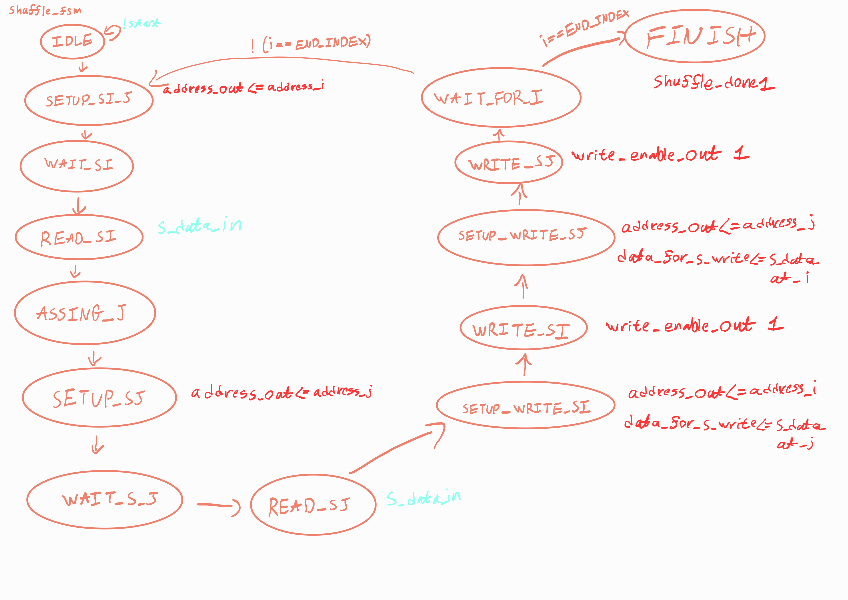 shuffle_fsm
IDLE
!start
SETUP_SI_J
address_out <= address_i
WAIT_SI
READ_SI
S_data_in
ASSING_J
SETUP_SJ
address_out <= address_j
WAIT_S_J
READ_SJ
S_data_in
SETUP_WRITE_SI
address_out <= address_i
data_for_s_write <= s_data_
at_j
WRITE_SI
write_enable_out 1
SETUP_WRITE_SJ
address_out <= address_j
data_for_s_write <= s_data_
at_i
WRITE_SJ
write_enable_out 1
WAIT_FOR_I
! (i == END_INDEX)
i == END_INDEX
FINISH
Shuffle_done 1